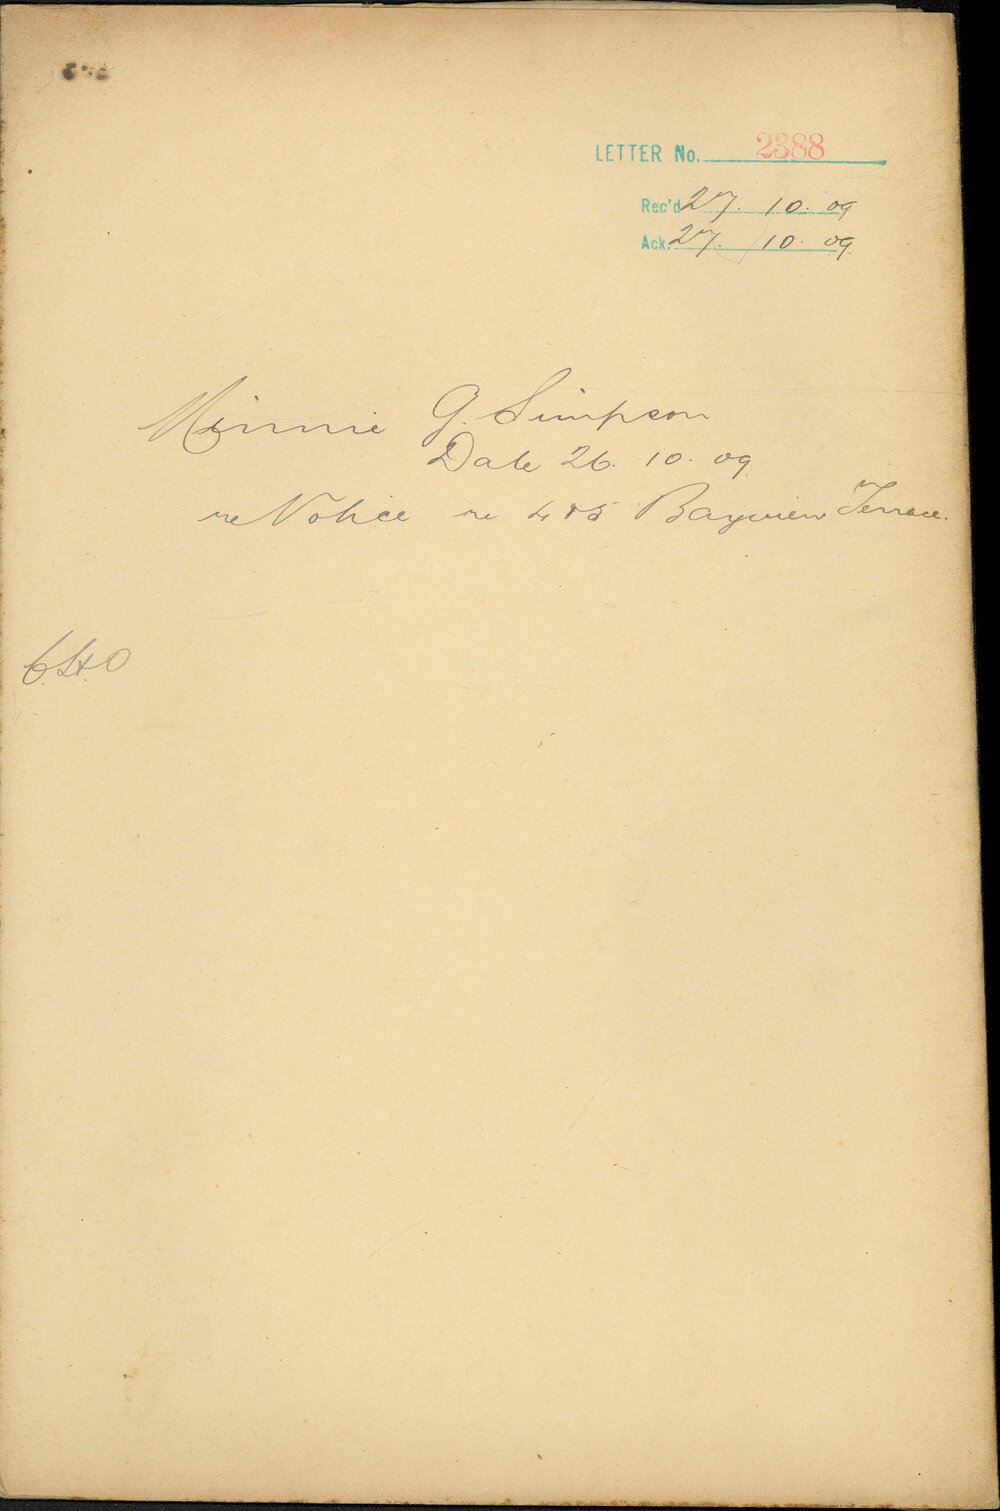 LETTER No. 2388
Rec'd 27. 10. 09
Ack. 27. 10. 09.
Minnie G. Simpson
Date 26. 10. 09.
re Notice re 4 & 5 Bayview Terrace.
C.H.O